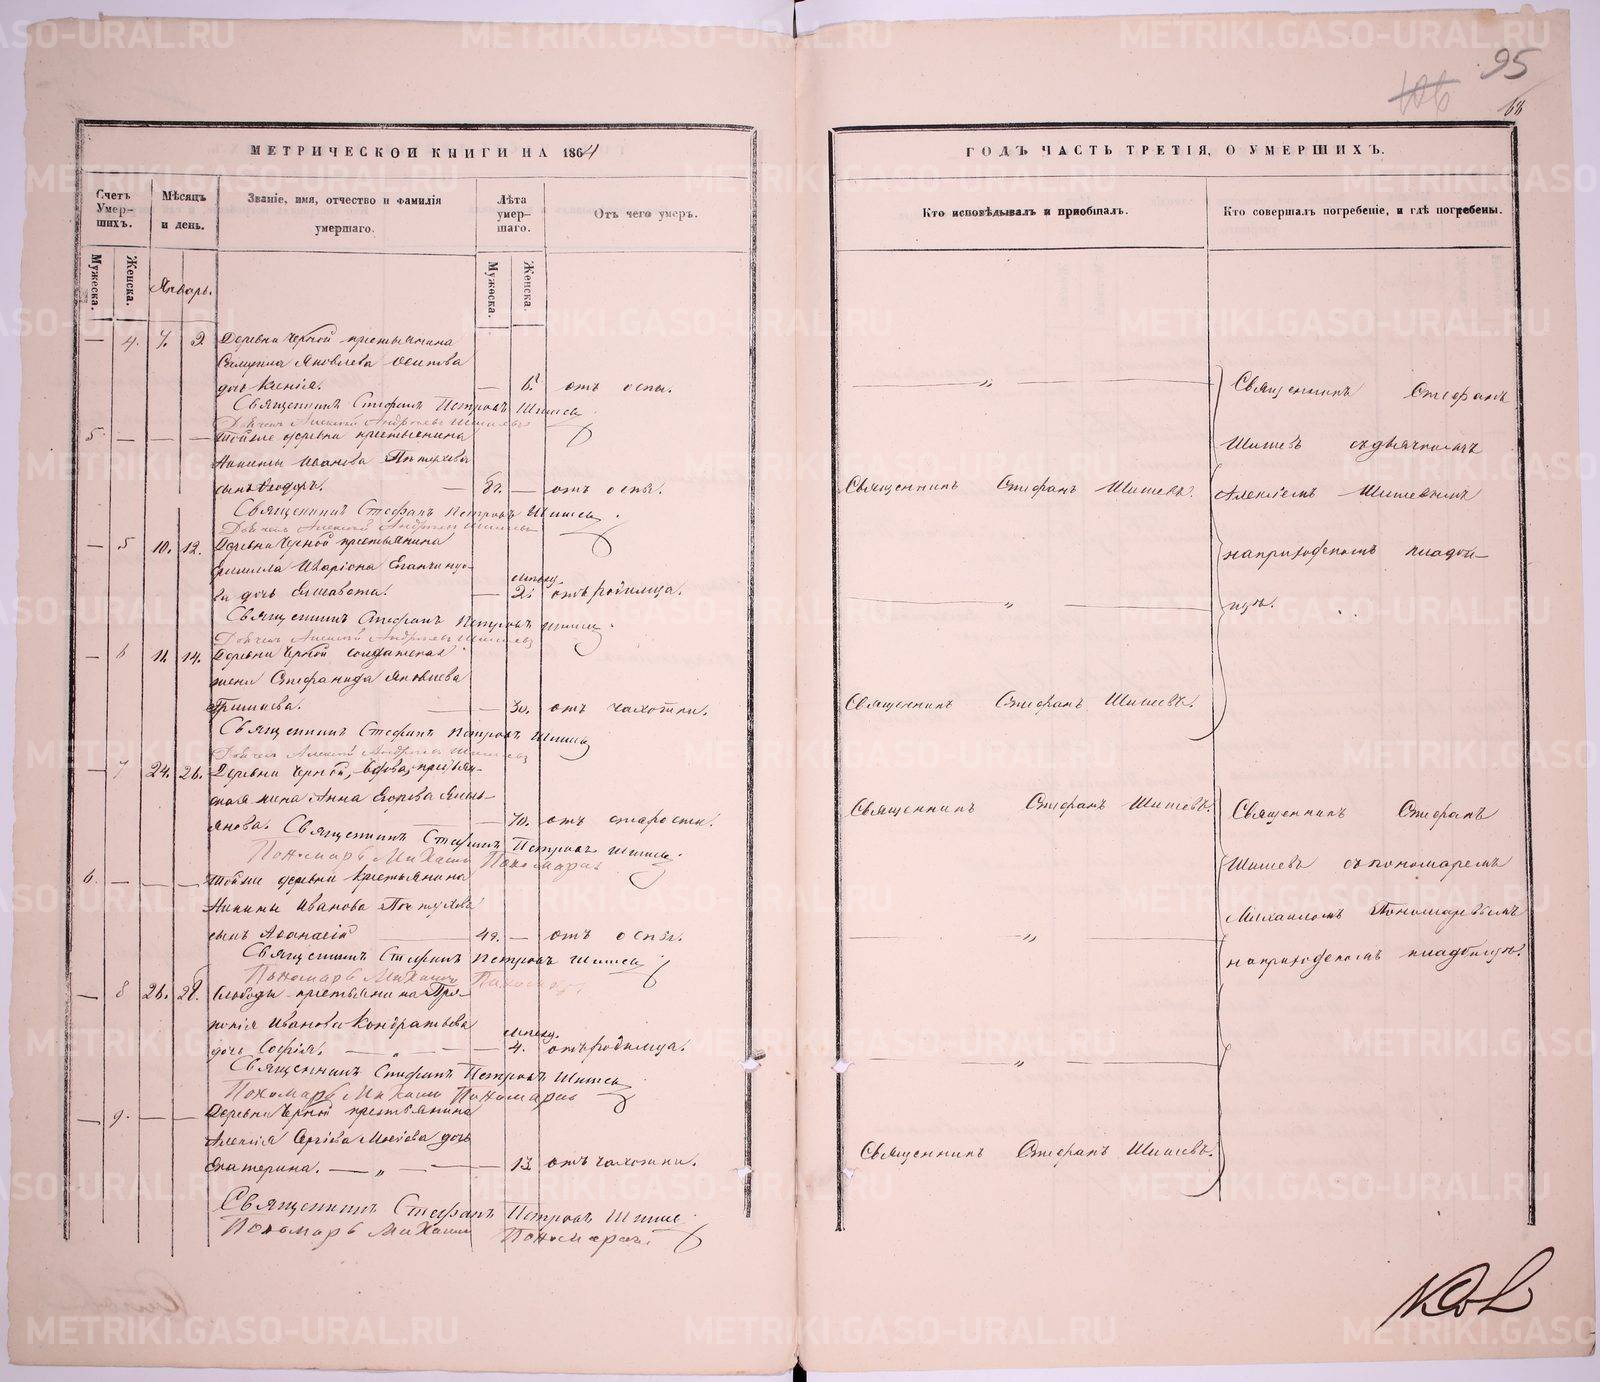 95
106
68
МЕТРИЧЕСКОЙ КНИГИ НА 1864
ГОДЪ ЧАСТЬ ТРЕТІЯ, О УМЕРШИХЪ.
Счетъ Умер-шихъ.
Мѣсяцъ и день.
Званіе, имя, отчество и фамилія умершаго.
Лѣта умер-шаго.
Отъ чего умеръ.
Кто исповѣдывалъ и пріобщалъ.
Кто совершалъ погребеніе, и гдѣ погребены.
Мужеска.
Женска.
Январь.
Мужеска.
Женска.
— 4. 7. 9. Деревни Черной крестьянина
Яковлева Осипова
дочь Ксенія. — 6. отъ оспы. — „ —
Священникъ Стефанъ Петровъ Шишевъ
Дьячекъ Алексій Андреевъ Шишевъ
5. — — — Тойже деревни крестьянина
Никиты Иванова
сынъ Ѳеодоръ. — 8. — отъ оспы. Священникъ Стефанъ Шишевъ.
Священникъ Стефанъ Петровъ Шишевъ
Дьячекъ Алексій Андреевъ Шишевъ
— 5 10. 12. Деревни Черной крестьянина
Иларіона
дочь Елисавета. — 2. отъ родимца. — „ —
Священникъ Стефанъ Петровъ Шишевъ
Дьячекъ Алексій Андреевъ Шишевъ
— 6 11. 14. Деревни Черной солдатская
жена Стефанида Яковлева
— 30. отъ чахотки. Священникъ Стефанъ Шишевъ.
Священникъ Стефанъ Петровъ Шишевъ
Дьячекъ Алексій Андреевъ Шишевъ
Священникъ Стефанъ
Шишевъ съ дьячкомъ
Алексіемъ Шишевымъ
на приходскомъ кладби-
щѣ.
— 7 24. 26. Деревни Черной, вдова, крестьян-
ская жена Анна Егорова
— 70. отъ старости. Священникъ Стефанъ Шишевъ.
Священникъ Стефанъ Петровъ Шишевъ
Пономарь Михаилъ Пономаревъ
6. — — — Тойже деревни крестьянина
Никиты Иванова
сынъ Аѳанасій — 4. — отъ оспы. — „ —
Священникъ Стефанъ Петровъ Шишевъ
Пономарь Михаилъ Пономаревъ
— 8 26. 28. Слободы крестьянина Про-
копія Иванова Кондратьева
дочь Софія. — „ — 4. отъ родимца. — „ —
Священникъ Стефанъ Петровъ Шишевъ
Пономарь Михаилъ Пономаревъ
— 9. — — Деревни Черной крестьянина
Алексія Сергіева дочь
Екатерина. — „ — 13. отъ чахотки. Священникъ Стефанъ Шишевъ.
Священникъ Стефанъ Петровъ Шишевъ
Пономарь Михаилъ Пономаревъ
Священникъ Стефанъ
Шишевъ съ пономаремъ
Михаиломъ Пономаревымъ
на приходскомъ кладбищѣ.
METRIKI.GASO-URAL.RU